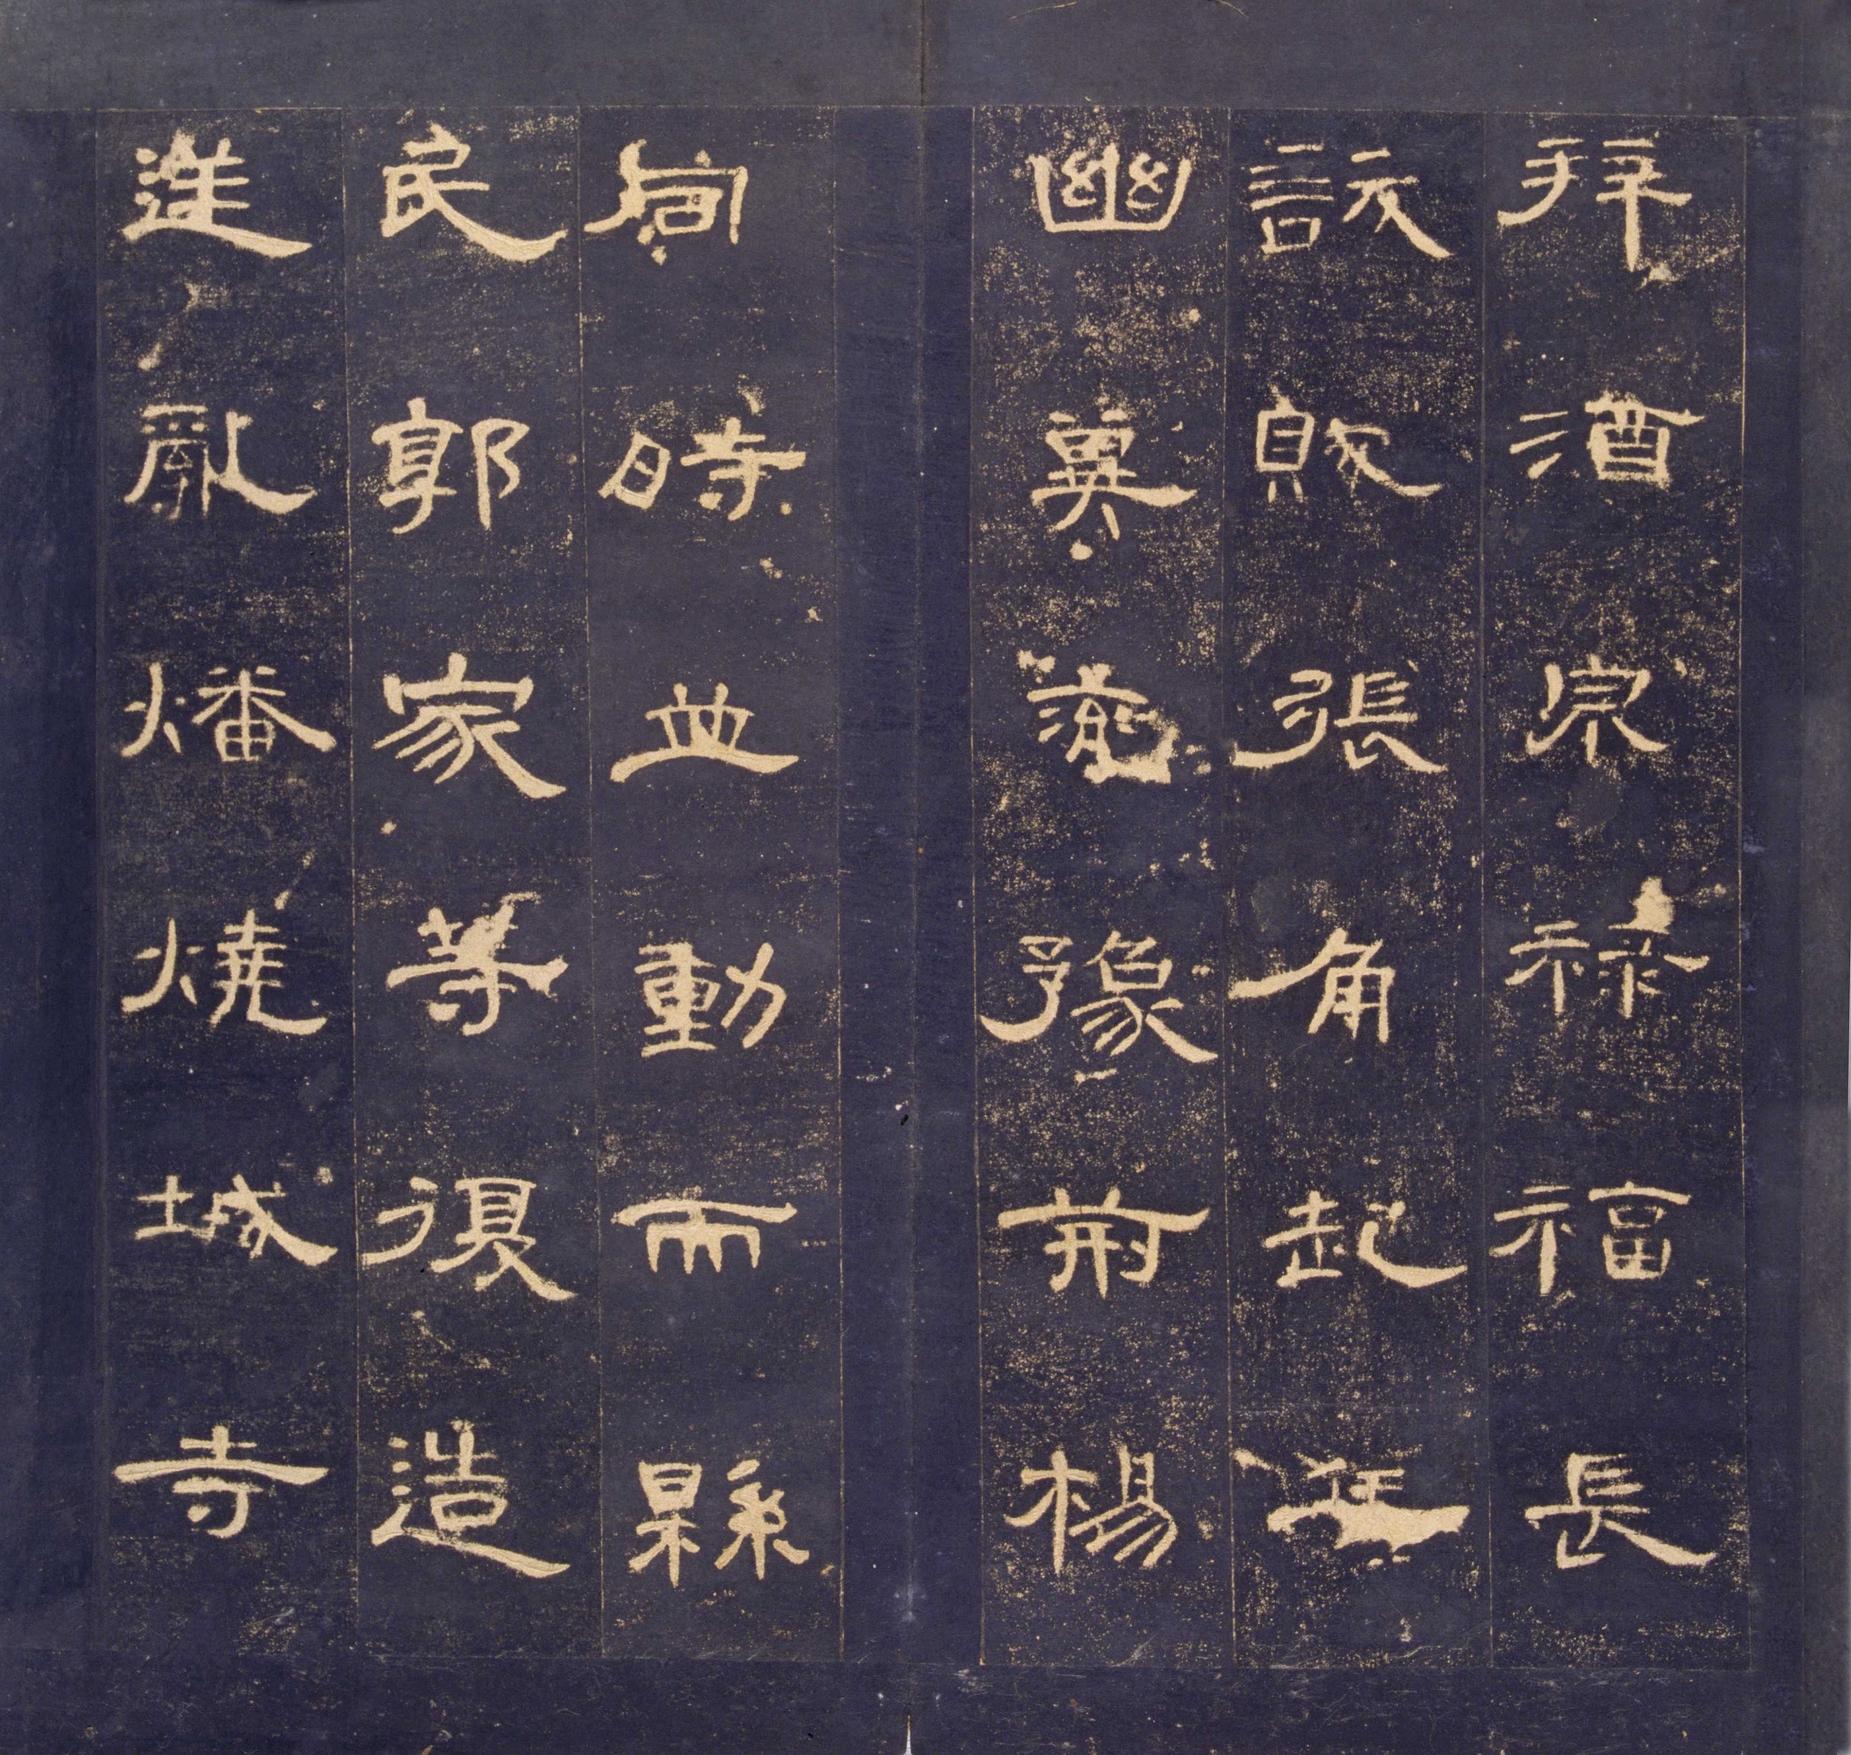 拜酒泉祿福長
訞賊張角起
幽冀兗豫荊楊
同時並動而縣
民郭家等復造
逆亂燔燒城寺